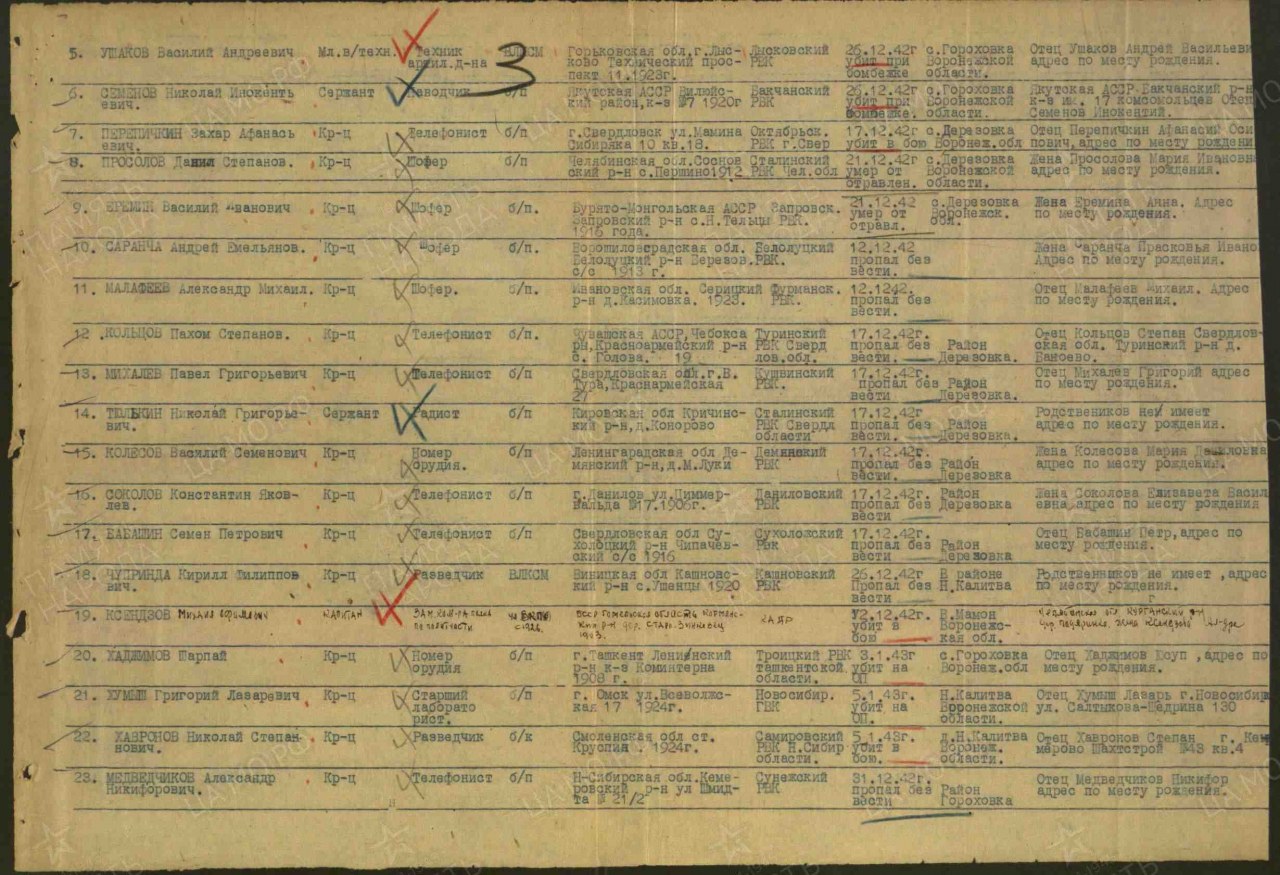 5. УШАКОВ Василий Андреевич Мл.в/техн. Техник ВЛКСМ Горьковская обл,г.Лыс- Лысковский 26.12.42г с.Гороховка Отец Ушаков Андрей Васильеви
артил.д-на 3 ково Технический прос- РВК убит при Воронежской адрес по месту рождения.
пект 11.1923г. бомбежке области.
6. СЕМЕНОВ Николай Инокенть Сержант Наводчик б/п Якутская АССР Вилюйс- Вакчанский 26.12.42г с.Гороховка Якутская АССР Вакчанский р-н
евич. кий район,к-з №7 1920г РВК убит при Воронежской к-з им. 17 комсомольцев Отец
бомбежке. области. Семенов Инокентий.
7. ПЕРЕПИЧКИН Захар Афанась Кр-ц Телефонист б/п г.Свердловск ул.Мамина Октябрьск. 17.12.42г с.Деревовка Отец Перепичкин Афанасий Оси
евич. Сибиряка 10 кв.18. РВК г.Свер убит в бою Воронеж.обл пович,адрес по месту рождени
8. ПРОСОЛОВ Данил Степанов. Кр-ц Шофер б/п Челябинская обл.Соснов Сталинский 21.12.42г с.Дерезовка Жена Просолова Мария Ивановна
ский р-н с.Першино1912 РВК Чел.обл умер от Воронежской адрес по месту рождения.
отравлен. области.
9. ЕРЕМИН Василий Иванович Кр-ц Шофер б/п. Бурято-Монгольская АССР Запровск. 21.12.42 с.Дерезовка Жена Еремина Анна. Адрес
Запровский р-н с.Н.Тельцы РВК. умер от Воронежск. по месту рождения.
1916 года. отравл. обл.
10. САРАНЧА Андрей Емельянова. Кр-ц Шофер б/п. Ворошиловградская обл. Белолуцкий 12.12.42 Жена Саранча Прасковья Ивано
Белолуцкий р-н Березов. РВК. пропал без Адрес по месту рождения.
с/с 1913 г. вести.
11. МАЛАФЕЕВ Александр Михаил. Кр-ц Шофер. б/п. Ивановская обл. Серицкий Фурманск. 12.1242. Отец Малафеев Михаил. Адрес
р-н д.Касимовка. 1923. РВК. пропал без по месту рождения.
вести.
12 .КОЛЬЦОВ Пахом Степанов. Кр-ц Телефонист б/п. Чувашская АССР,Чебокса Туринский 17.12.42г. Отец Кольцов Степан Свердлов-
ры,Красноармейский р-н РВК Сверд пропал без Район ская обл. Туринский р-н д.
с. Голова. 19 лов.обл. вести. Дерезовка. Баноево.
13. МИХАЛЕВ Павел Григорьевич Кр-ц Телефонист б/п Свердловская обл,г.В. Кушвинский 17.12.42г. Отец Михалев Григорий адрес
Тура,Краснармейская РВК. пропал без Район по месту рождения.
27 вести Дерезовка.
14. ТЮЛЬКИН Николай Григорье- Сержант Радист б/п Кировская обл Кричинс- Сталинский 17.12.42г Родствеников не имеет
вич. кий р-н,д.Конорово РВК Свердл пропал без Район адрес по месту рождения.
области вести. Дерезовка.
15. КОЛЕСОВ Василий Семенович Кр-ц Номер б/п Ленинградская обл Де- Демянский 17.12.42г. Жена Колесова Мария Даниловна
орудия. мянский р-н,д.М.Луки РВК пропал без Район адрес по месту рождения.
вести. Дерезовка
16. СОКОЛОВ Константин Яков- Кр-ц Телефонист б/п г.Данилов ул.Циммер- Даниловский 17.12.42г. Район Жена Соколова Елизавета Васил
лев. вальда №17.1906г. РВК пропал без Дерезовка евна,адрес по месту рождения
вести
17. БАБАШИН Семен Петрович Кр-ц Телефонист б/п Свердловская обл Су- Сухоложский 17.12.42г. Отец Бабашин Петр,адрес по
холоцкий р-н Чипачев- РВк пропал без Район месту рождения.
ский с/с 1916 вести Дерезовка
18. ЧУПРИНДА Кирилл Филиппов Кр-ц Разведчик ВЛКСМ Виницкая обл Кашновс- Кашновский 26.12.42г В районе Родственников не имеет ,адрес
вич. кий р-н с.Ушенцы 1920 РВК Пропал без Н.Калитва по месту рождения
вести г
19. КСЕНДЗОВ Михаил Ефимович капитан Зам. ком-ра по политчасти чл ВКП(б) БССР Гомельская область р-н дер. 1903. КАДР 22.12.42г. В.Мамон Челябинская обл. Курганский р-н
с 1926. убит в Воронежс- жена Ксендзова
бою кая обл.
20. ХАДЖИМОВ Шарпай Кр-ц Номер б/п г.Ташкент Ленинский Троицкий РВК 3.1.43г с.Гороховка Отец Хаджимов Юсуп ,адрес по
орудия р-н к-з Коминтерна ташкентской убит на Воронеж.обл месту рождения.
1908 г. области. ОП
21. ХУМЫШ Григорий Лазаревич Кр-ц Старший б/к г. Омск ул.Всеволжс- Новосибир. 5.1.43г. Н.Калитва Отец Хумыш Лазарь г.Новосибир
лаборато кая 17 1924г. ГВК убит на Воронежской ул. Салтыкова-Щедрина 130
рист. ОП. области.
22. ХАВРОНОВ Николай Степан Кр-ц Разведчик б/к Смоленская обл ст. Самировский 5.1.43г. д.Н.Калитва Отец Хавронов Степан г. Кем
нович. Круспия . 1924г. РВК Н.Сибир убит в Воронеж. мерово Шахтстрой №43 кв.4
области. бою. области.
23. МЕДВЕДЧИКОВ Александр Кр-ц Телефонист б/п Н-Сибирская обл.Кеме- Сунежский 31.12.42г. Отец Медведчиков Никифор
Никифорович. ровский р-н ул Шмид- РВК пропал без Район адрес по месту рождения.
та № 21/2 вести Гороховка